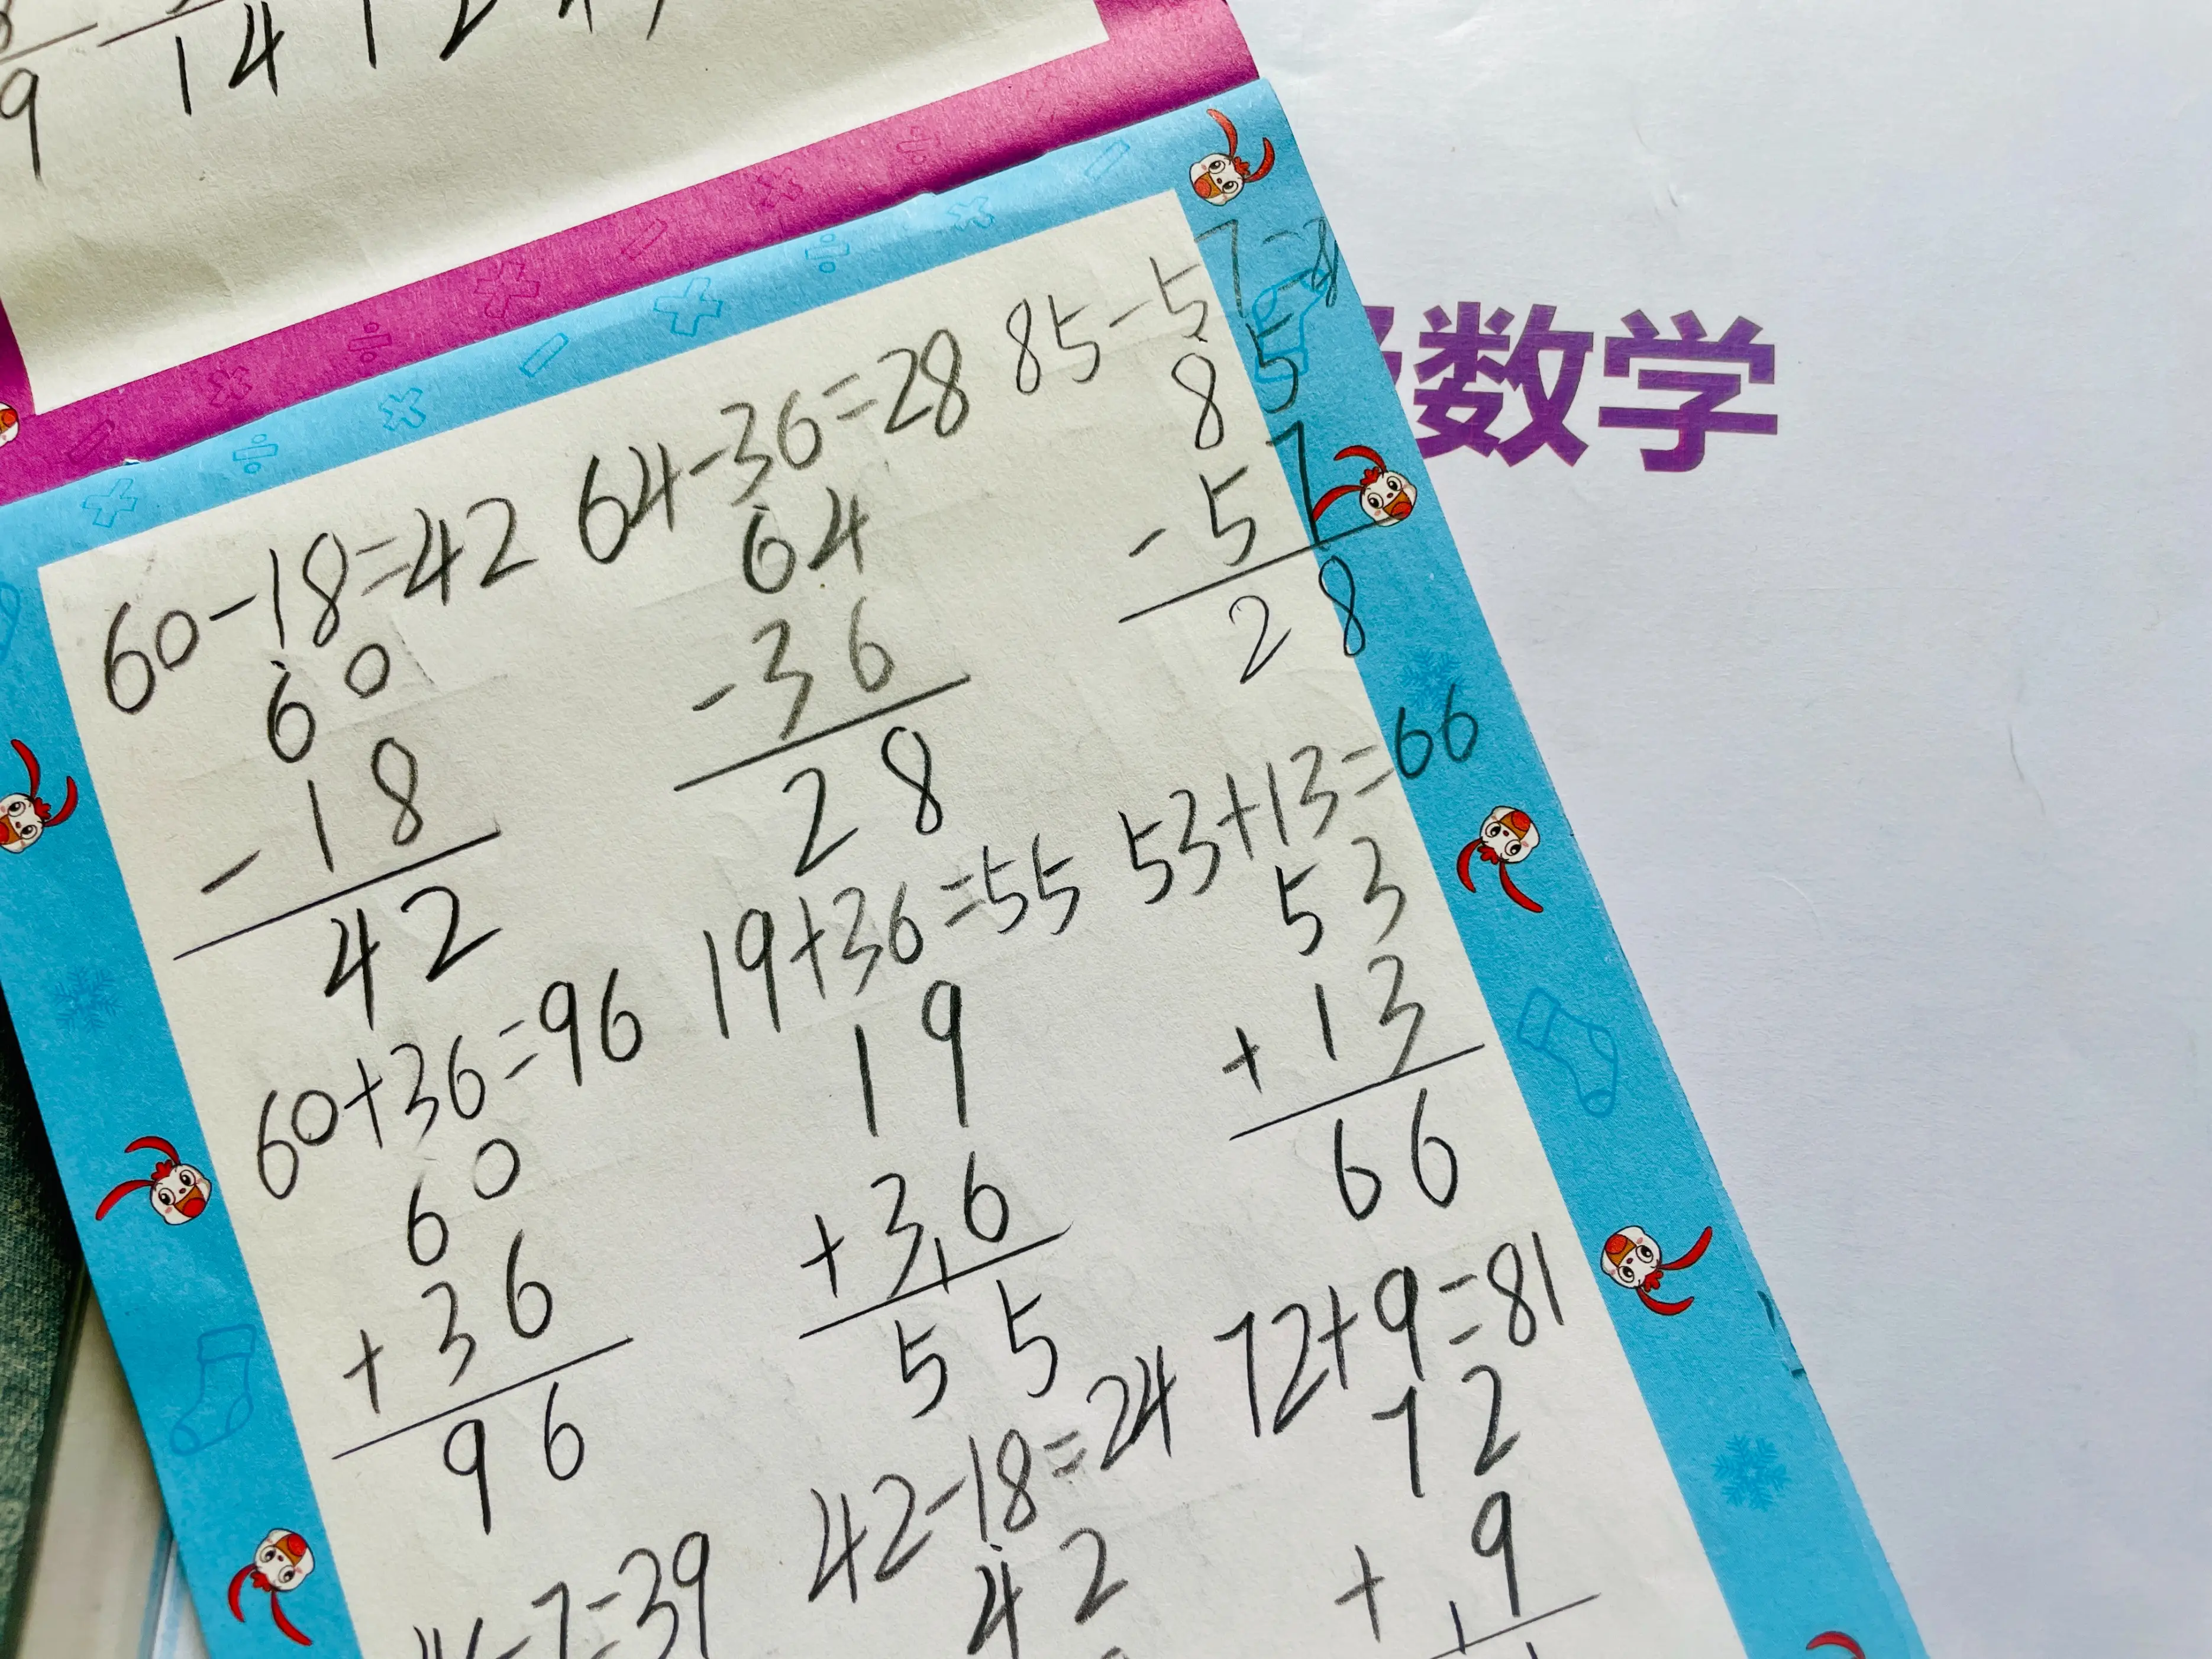 9
14
数学
60-18=42 64-36=28 85-57=
60 64 85
-18 -36 -57
42 28 28
60+36=96 19+36=55 53+13=66
60 19 53
+36 +36 +13
96 55 66
-7=39 42-18=24 72+9=81
42 72
+ 9